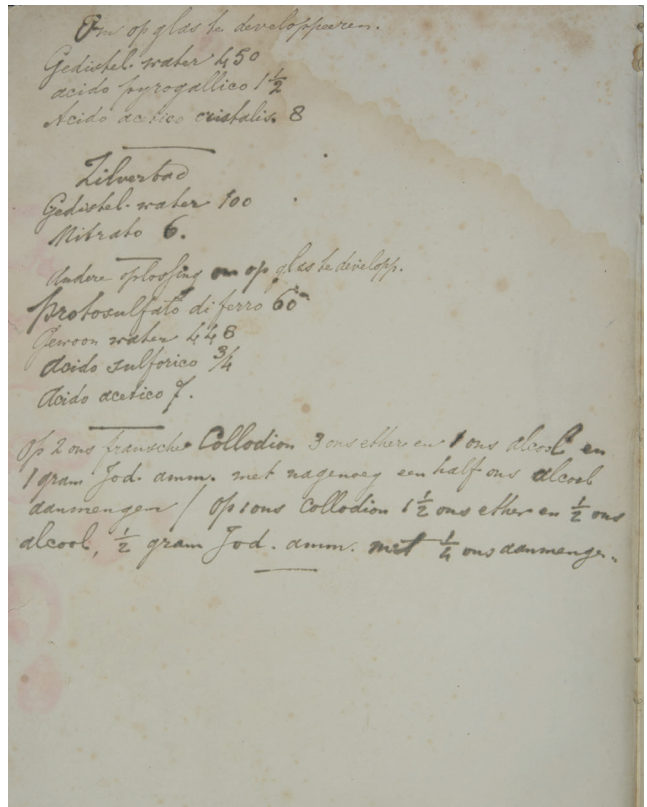 Om op glas te developpeeren.
Gedistel. water 450
acido pyrogallico 1 1/2
Acido acetico cristalis. 8
Zilverbad
Gedistel. water 100
Nitrato 6.
Andere oplossing om op glas te develepp.
protosulfato di ferro 60
Gewoon water 448
Acido sulforico 3/4
Acido acetico 7.
Op 2 ons fransche Collodion 3 ons ether en 1 ons alcool en
1 gram Jod. amm. met nagenoeg een half ons alcool
aanmengen / Op 1 ons Collodion 1 1/2 ons ether en 1/2 ons
alcool, 1/2 gram Jod. amm. met 1/4 ons aanmenge..